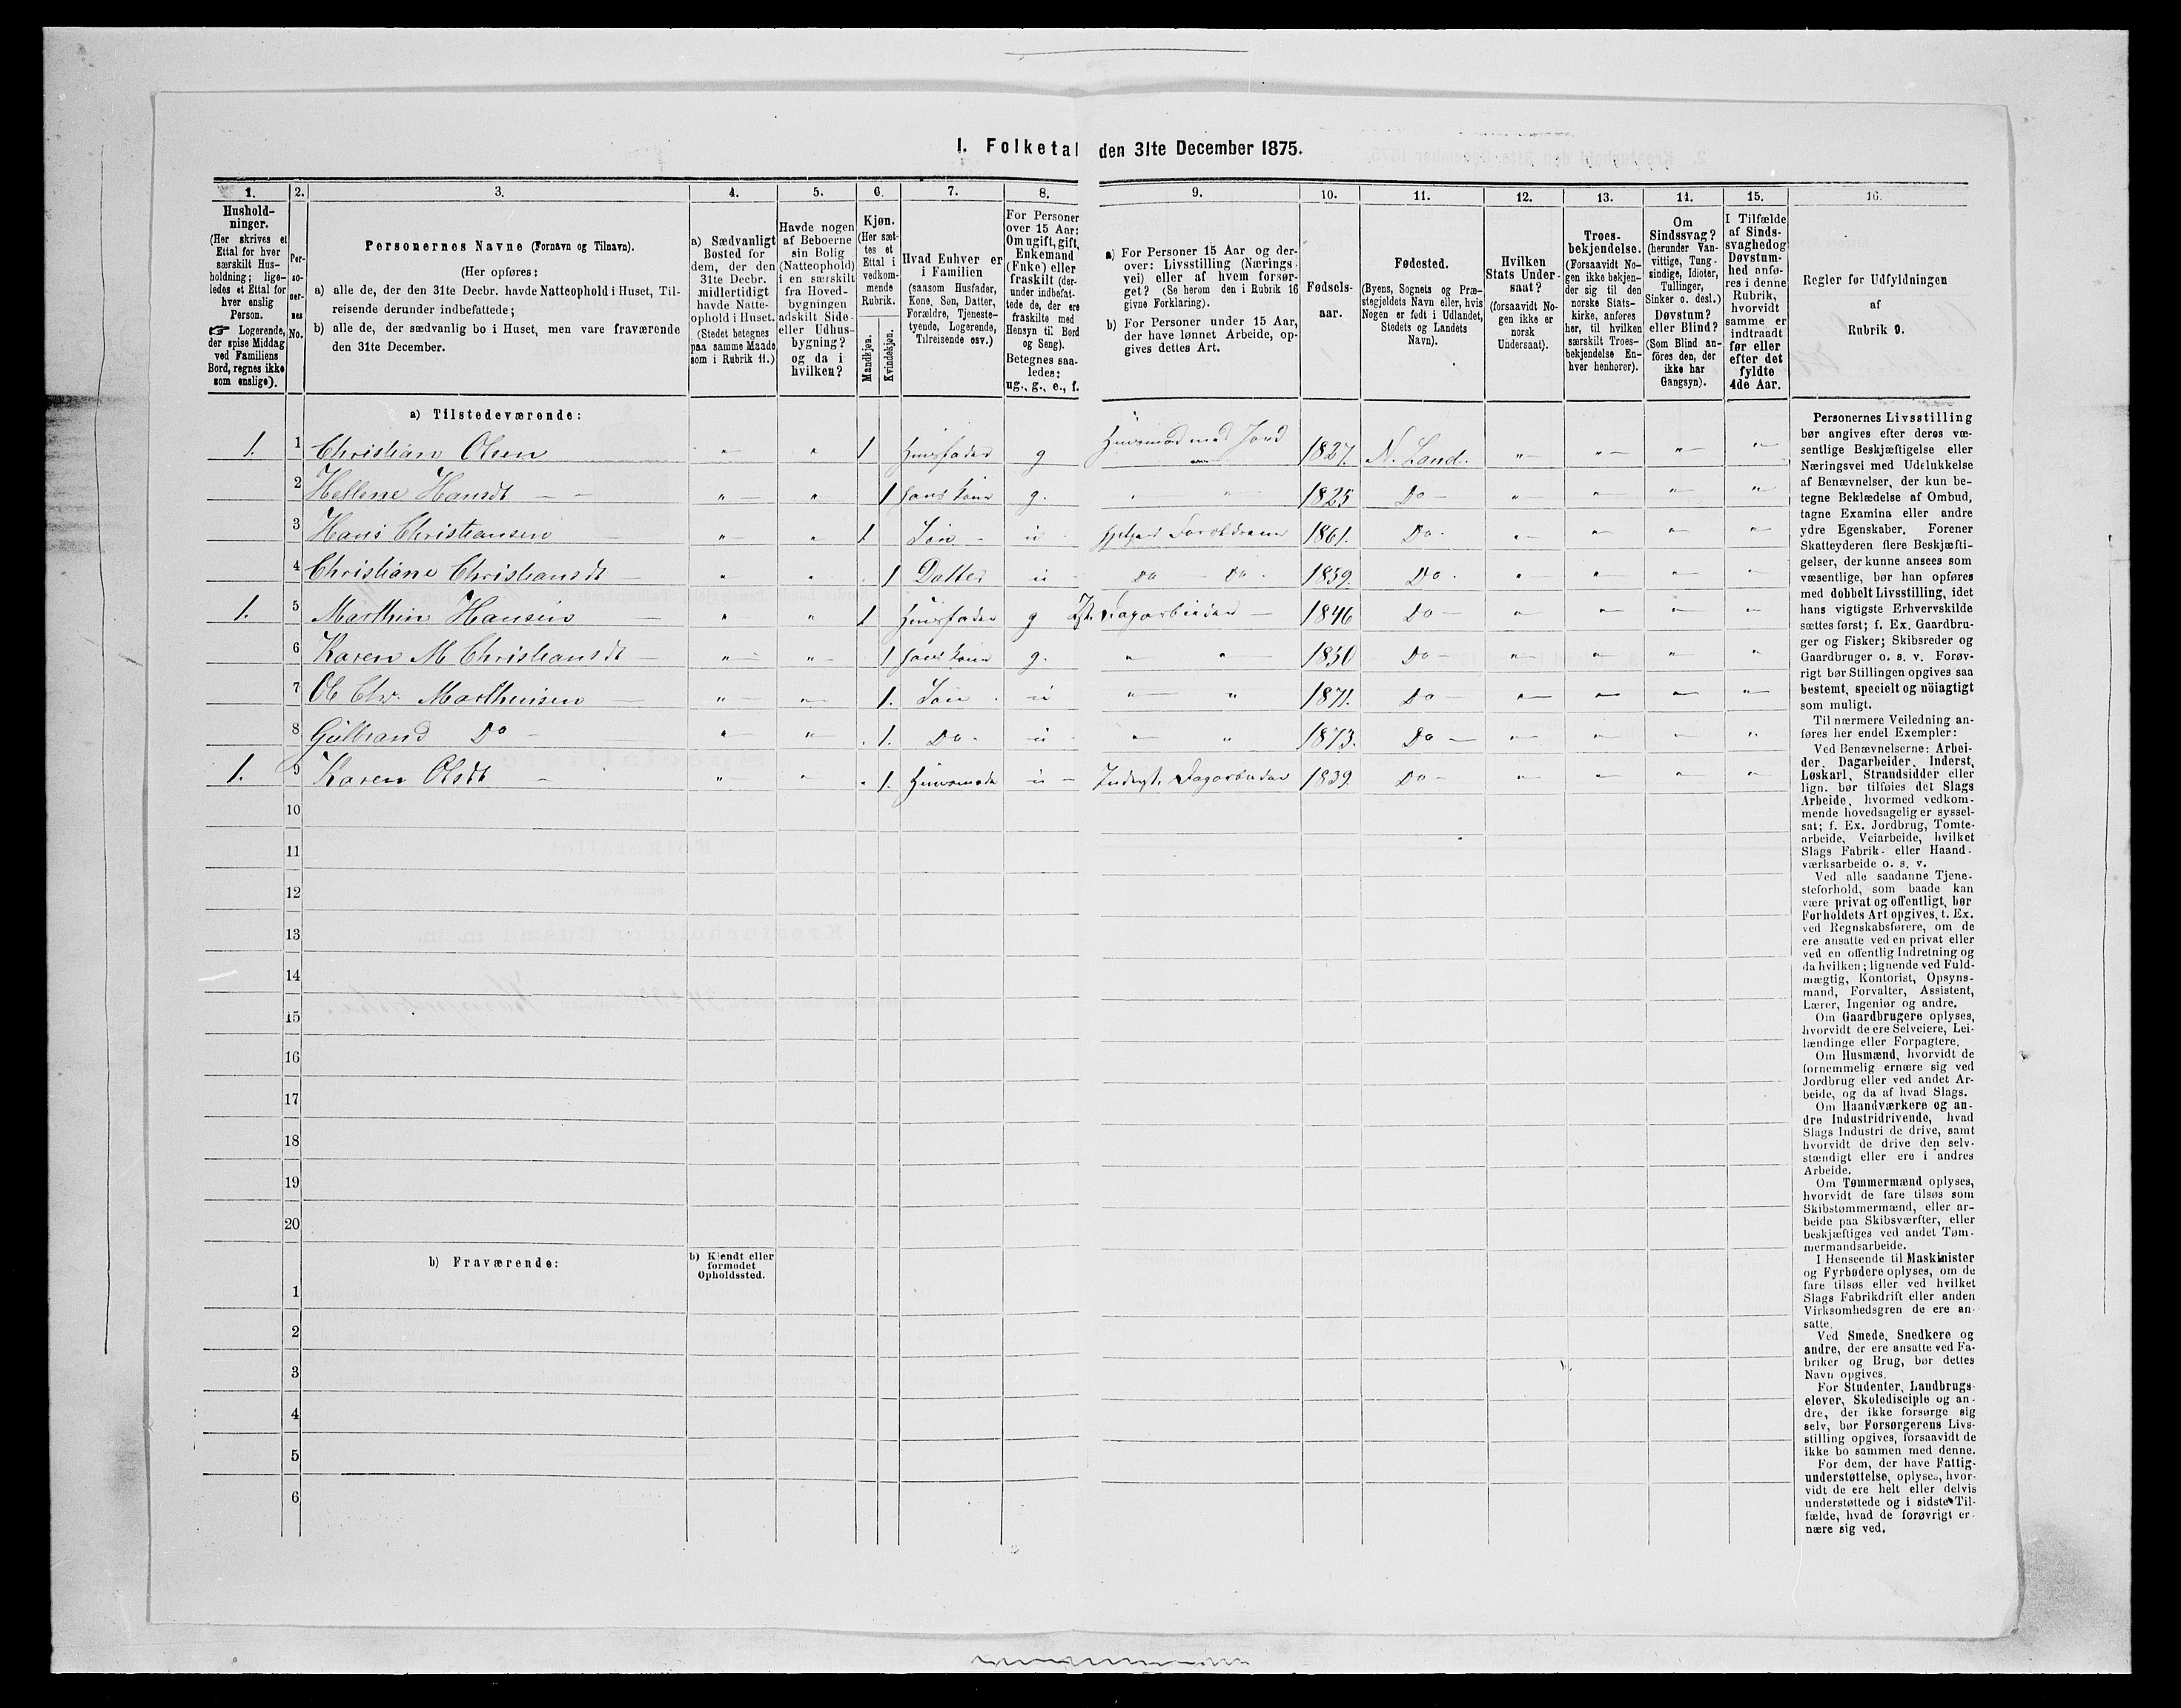 1. Folketal den 31te December 1875.
1. 2. 3. 4. 5. 6. 7. 8. 9. 10. 11. 12. 13. 14. 15. 16.
Hushold-
ninger.
(Her skrives et
Ettal for hver
særskilt Hus-
holdning; lige-
ledes et Ettal for
hver enslig
Person.
☞ Logerende,
der spise Middag
ved Familiens
Bord, regnes ikke
som enslige).
Per-
so-
ner-
nes
No.
Personernes Navne (Fornavn og Tilnavn).
(Her opføres:
a) alle de, der den 31te Decbr. havde Natteophold i Huset, Til-
reisende derunder indbefattede;
b) alle de, der sædvanlig bo i Huset, men vare fraværende
den 31te December.
a) Sædvanligt
Bosted for
dem, der den
31te Decbr.
midlertidigt
havde Natte-
ophold i Huset.
(Stedet betegnes
paa samme Maade
som i Rubrik 11.)
Havde nogen
af Beboerne
sin Bolig
(Natteophold)
i en særskilt
fra Hoved-
bygningen
adskilt Side-
eller Udhus-
bygning?
og da i
hvilken?
Kjøn.
(Her sæt-
tes et
Ettal i
vedkom-
mende
Rubrik.
Mandkjøn.
Kvindekjøn.
Hvad Enhver er
i Familien
(saasom Husfader,
Kone, Søn, Datter,
Forældre, Tjeneste-
tyende, Logerende,
Tilreisende osv.)
For Personer
over 15 Aar:
Om ugift, gift,
Enkemand
(Enke) eller
fraskilt (der-
under indbefat-
tede de, der ere
fraskilte med
Hensyn til Bord
og Seng).
Betegnes saa-
ledes:
ug., g., e., f.
a) For Personer 15 Aar og der-
over: Livsstilling (Nærings-
vei) eller af hvem forsør-
get? (Se herom den i Rubrik 16
givne Forklaring).
b) For Personer under 15 Aar,
der have lønnet Arbeide, op-
gives dettes Art.
Fødsels-
aar.
Fødested.
(Byens, Sognets og Præ-
stegjeldets Navn eller, hvis
Nogen er født i Udlandet,
Stedets og Landets
Navn).
Hvilken
Stats Under-
saat?
(forsaavidt No-
gen ikke er
norsk
Undersaat).
Troes-
bekjendelse.
(Forsaavidt No-
gen ikke bekjen-
der sig til den
norske Stats-
kirke, anføres
her, til hvilken
særskilt Troes-
bekjendelse En-
hver henhører).
Om
Sindssvag?
(herunder Van-
vittige, Tung-
sindige, Idioter,
Tullinger,
Sinker o. desl.)
Døvstum?
eller Blind?
(Som Blind an-
føres den, der
ikke har
Gangsyn).
I Tilfælde
af Sinds-
svaghed og
Døvstum-
hed anfø-
res i denne
Rubrik,
hvorvidt
samme er
indtraadt
før eller
efter det
fyldte
4de Aar.
Regler for Udfyldningen
af
Rubrik 9.
a) Tilstedeværende:
1. 1 Christian Olsen " " 1 Huusfader g Huusmad med Jord 1827. N. Land. " " " "
2 Hellene Hansdt " " 1 hans kone g. " " 1825 Do " " " "
3 Hans Christiansen " " 1 Søn u 1861. Do " " " "
4 Christiane Christiansdt " " 1 Datter u Do Do 1859. Do " " " "
1. 5 Marthin Hansen " " 1 Huusfader g Dagarbeider 1846 Do " " " "
6 Karen M Christiansdt " " 1 hans kone g. " " 1850 Do " " " "
7 Ole Chr. Marthinsen " " 1. Søn u " " 1871. Do " " " "
8 Gulbrand Do " " 1. Do u " " 1873. Do " " " "
1. 9 Karen Olsdt " " 1. Huusmoder u Inderst. Dagarbeider 1839. Do " " " "
10
11
12
13
14
15
16
17
18
19
20
b) Fraværende:
b) Kjendt eller
formodet
Opholdssted.
1
2
3
4
5
6
Personernes Livsstilling
bør angives efter deres væ-
sentlige Beskjæftigelse eller
Næringsvei med Udelukkelse
af Benævnelser, der kun be-
tegne Beklædelse af Ombud,
tagne Examina eller andre
ydre Egenskaber. Forener
Skatteyderen flere Beskjæfti-
gelser, der kunne ansees som
væsentlige, bør han opføres
med dobbelt Livsstilling, idet
hans vigtigste Erhvervskilde
sættes først; f. Ex. Gaardbru-
ger og Fisker; Skibsreder og
Gaardbruger o. s. v. Forøv-
rigt bør Stillingen opgives saa
bestemt, specielt og nöiagtigt
som muligt.
Til nærmere Veiledning an-
føres her endel Exempler:
Ved Benævnelserne: Arbei-
der, Dagarbeider, Inderst,
Løskarl, Strandsidder eller
lign. bør tilføies det Slags
Arbeide, hvormed vedkom-
mende hovedsagelig er syssel-
sat; f. Ex. Jordbrug, Tomte-
arbeide, Veiarbeide, hvilket
Slags Fabrik- eller Haand-
værksarbeide o. s. v.
Ved alle saadanne Tjene-
steforhold, som baade kan
være privat og offentligt, bør
Forholdets Art opgives, t. Ex.
ved Regnskabsførere, om de
ere ansatte ved en privat eller
ved en offentlig Indretning og
da hvilken; lignende ved Fuld-
mægtig, Kontorist, Opsyns-
mand, Forvalter, Assistent,
Lærer, Ingeniør og andre.
Om Gaardbrugere oplyses,
hvorvidt de ere Selveiere, Lei-
lændinge eller Forpagtere.
Om Husmænd, hvorvidt de
fornemmelig ernære sig ved
Jordbrug eller ved andet Ar-
beide, og da af hvad Slags.
Om Haandværkere og an-
dre Industridrivende, hvad
Slags Industri de drive, samt
hvorvidt de drive den selv-
stændigt eller ere i andres
Arbeide.
Om Tømmermænd oplyses,
hvorvidt de fare tilsøs som
Skibstømmermænd, eller ar-
beide paa Skibsværfter, eller
beskjæftiges ved andet Tøm-
mermandsarbeide.
I Henseende til Maskinister
og Fyrbødere oplyses, om de
fare tilsøs eller ved hvilket
Slags Fabrikdrift eller anden
Virksomhedsgren de ere an-
satte.
Ved Smede, Snedkere og
andre, der ere ansatte ved Fa-
briker og Brug, bør dettes
Navn opgives.
For Studenter, Landbrugs-
elever, Skoledisciple og an-
dre, der ikke forsørge sig
selv, bør Forsørgerens Livs-
stilling opgives, forsaavidt de
ikke bo sammen med denne.
For dem, der have Fattig-
understøttelse, oplyses, hvor-
vidt de ere helt eller delvis
understøttede og i sidste Til-
fælde, hvad de forøvrigt er-
nære sig ved.